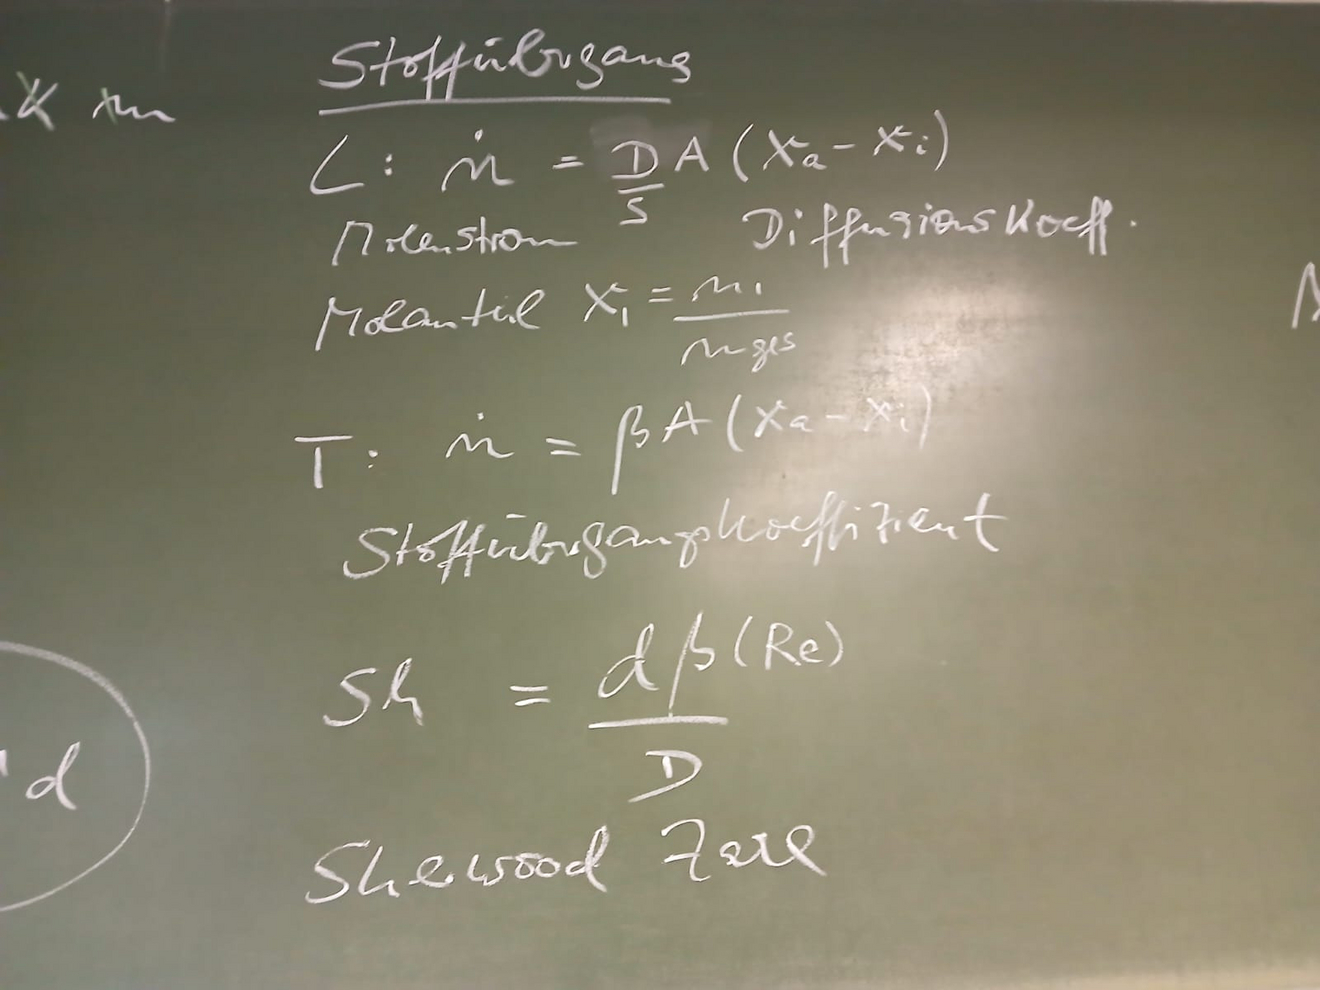 Stoffübergang
L: ṅ = D/s A (xa - xi)
Molenstrom Diffusionskoeff.
Molanteil x1 = n1/nges
T: ṅ = βA (xa - xi)
Stoffübergangskoeffizient
Sh = dβ(Re)/D
Sherwood Zahl
d